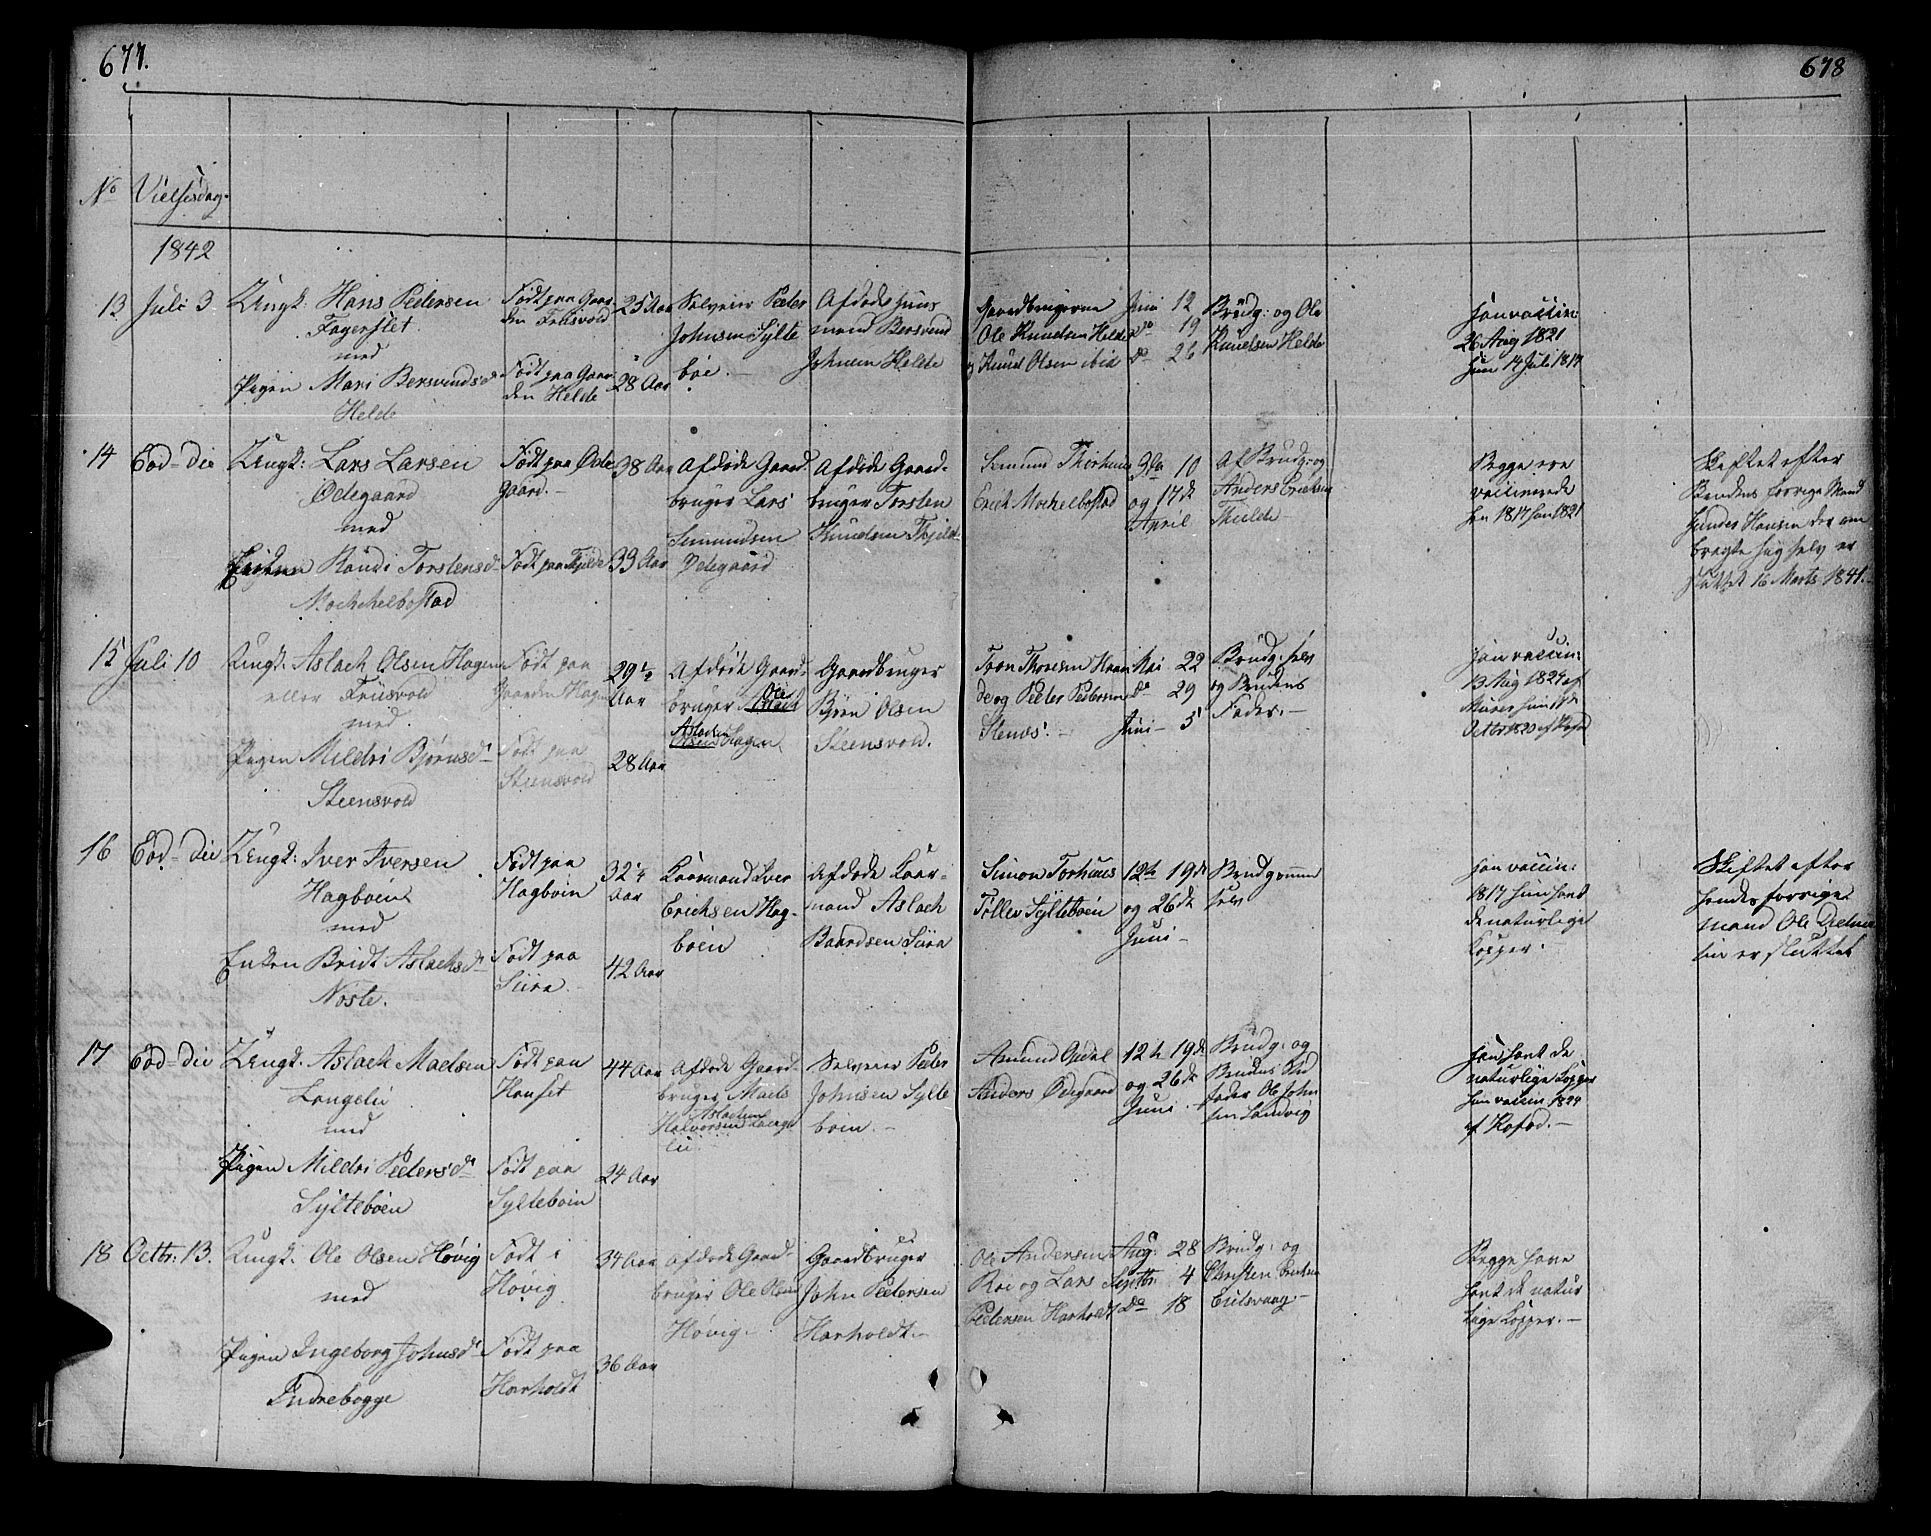 677.
678
No Vielsesdag.
1842
13 Juli 3 Ungk: Hans Pedersen
Fagerslet
med
Pigen Mari Bersvendsd
Helde
Født paa Gaar
den Friisvold
Født paa Gaar
den Helde
25 Aar
28 Aar
Selveier Peder
Johnsen Sylte
bøe.
Afdøde Huus
mand Bersvend
Johnsen Helde
Gaardbrugerne
Ole Knudsen Helde
og Knud Olsen ibid
Juni 12
do 19
do 26
Brudg: og Ole
Knudsen Helde
Han vaccin:
26 Aug 1821
hun 14 Juli 1817
14 Eod-die Ungk: Lars Larsen
Ødegaard
med
Enken Randi Torstensd
Mochelbostad
Født paa Øde
gaard.
Født paa Tjelde
38 Aar
39 Aar
Afdøde Gaard
bruger Lars
Simundsen
Ødegaard
Afdøde Gaard-
bruger Torsten
Knudsen Tjelde
Simund Thorhuus
Erick Mochelbostad
3die 10
og 17de
April
Af Brudg: og
Anders Ericksen
Thielde
Begge ere
vaccinerede
han 1817 hun 1821
Skiftet efter
Brudens forrige Mand
Anders Hansen der om
bragte sig selv er
sluttet 16 Marts 1841.
15 Juli 10 Ungk: Aslach Olsen Hagen
eller Friisvold
med
Pigen Mildri Bjørnsd
Steensvold
Født paa
Gaarden Hagen
Født paa
Steensvold
29½
Aar
28 Aar
Afdøde Gaard-
bruger Ole
Aslachsen
Hagen
Gaardbruger
Bjørn Olsen
Steensvold.
Toen Thoresen Haan
de og Peder Pedersen
Stenes.
Mai 22
do 29
Juni 5
Brudg: selv
og Brudens
Fader.
Han vaccin:
13 Aug 1824 af
hun
Octbr 1820 af Kofod
16 Eod-die Ungk: Iver Iversen
Hagbøen
med
Enken Bridt Aslachsd
Noste.
Født paa
Hagbøen
Født paa
Siira
32¼
Aar
42 Aar
Kaarmand Iver
Erichsen Hag-
bøen
Afdøde Kaar-
mand Aslach
Baardsen Siira
Simon Torhuus
Tollev Syltebøen
12te 19de
og 26de
Juni
Brudgommen
selv
Han vaccin:
1817 hun havt
de naturlige
Kopper.
Skiftet efter
hendes forrige
mand Ole
er sluttet
17 Eod-die Ungk: Aslach Maelsen
Langelii
med
Pigen Mildri Pedersd
Syltebøen
Født paa
Hanset
Født paa
Syltebøen
44 Aar
24 Aar
Afdøde Gaard
bruger Maels
Aslachsen
Halvorsen Lange
lii.
Selveier Peder
Johnsen Sylte
bøen.
Amund Opdal
Anders Ødegaard
12te 19de
og 26de
Juni
Brudg: og
Brudens Stif
fader Ole John
sen Sandvig
Han havt de
naturlige Kopper
hun vaccin 1824
af Kofod.
18 Octbr: 13. Ungk: Ole Olsen Høvig
med
Pigen Ingeborg Johnsd
Indrebogge
Født i
Høvig
Født paa
Harholdt
34 Aar
36 Aar
Afdøde Gaard-
bruger Ole Olsen
Høvig
Gaardbruger
John Pedersen
Harholdt.
Ole Andersen
Roe og Lars
Pedersen Harholdt
Aug: 28
Septbr: 4
do 18
Brudg: og
Christen Ericksen
Eidsvaag.
Begge have
havt de natur
lige Kopper.